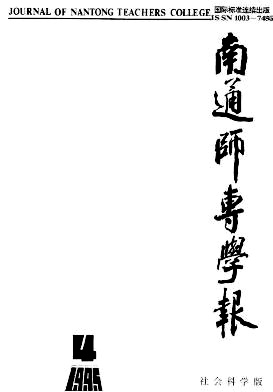 JOURNAL OF NANTONG TEACHERS COLLEGE
国际标准连续出版
ISSN 1003-7485
南通師專學報
4
1995
社会科学版